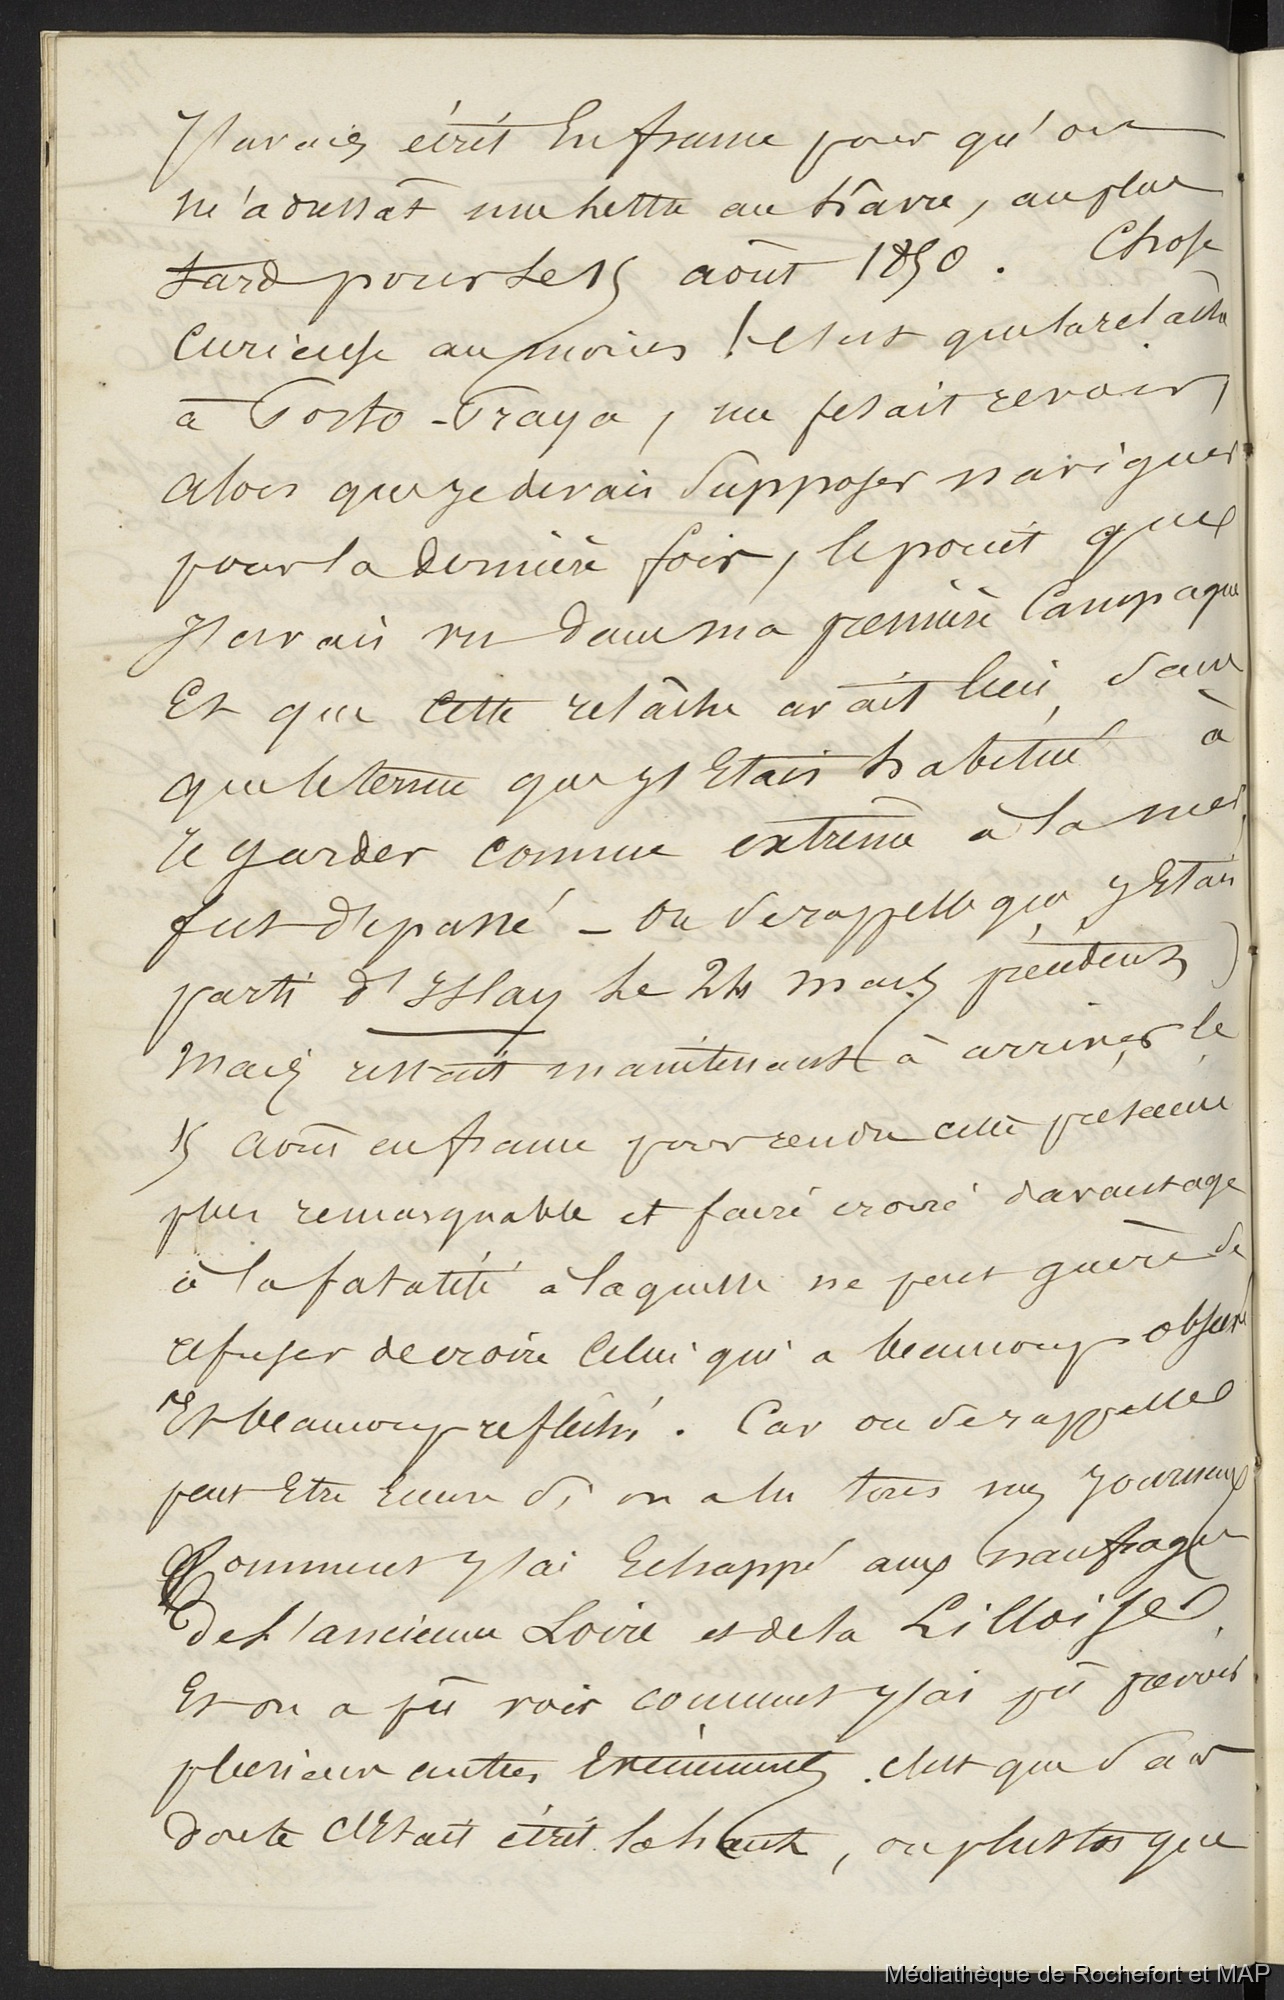 J'avais écrit En france pour qu'on
m'adressât une Lettre au hâvre, au plus
tard pour Le 15 août 1850. Chose
Curieuse au moins ! C'est que la relâche
à Porto-Praya, me fesait revoir,
alors que je devais Supposer naviguer
pour la dernière fois, le point que
j'avais vu dans ma première Campagne
Et que Cette relâche avait lieu, sans
que le terme que j'Etais habitué à
regarder comme extrême à la mer,
fut dépassé – On se rappelle que j'Etais
parti d'Islay Le 24 mars précédent)
Mais restait maintenant à arriver le
15 août en france pour rendre cette
plus remarquable et faire croire davantage
à la fatalité à laquelle ne peut guère se
refuser de croire Celui qui a beaucoup observé
Et beaucoup refléchi. Car on se rappelle
peut Etre Encore si on a lu tous mes Journaux
Comment j'ai Echappé aux naufrages
de L'ancienne Loire et de la Lilloise,
Et on a pû voir comment j'ai pû prévoir
plusieurs autres Evènements. C'est que sans
doute C'Etait écrit là haut, ou plustot que
Médiathèque de Rochefort et MAP